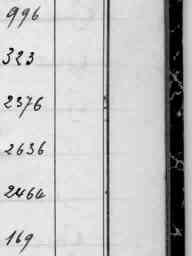 996
323
2376
2636
2464
169